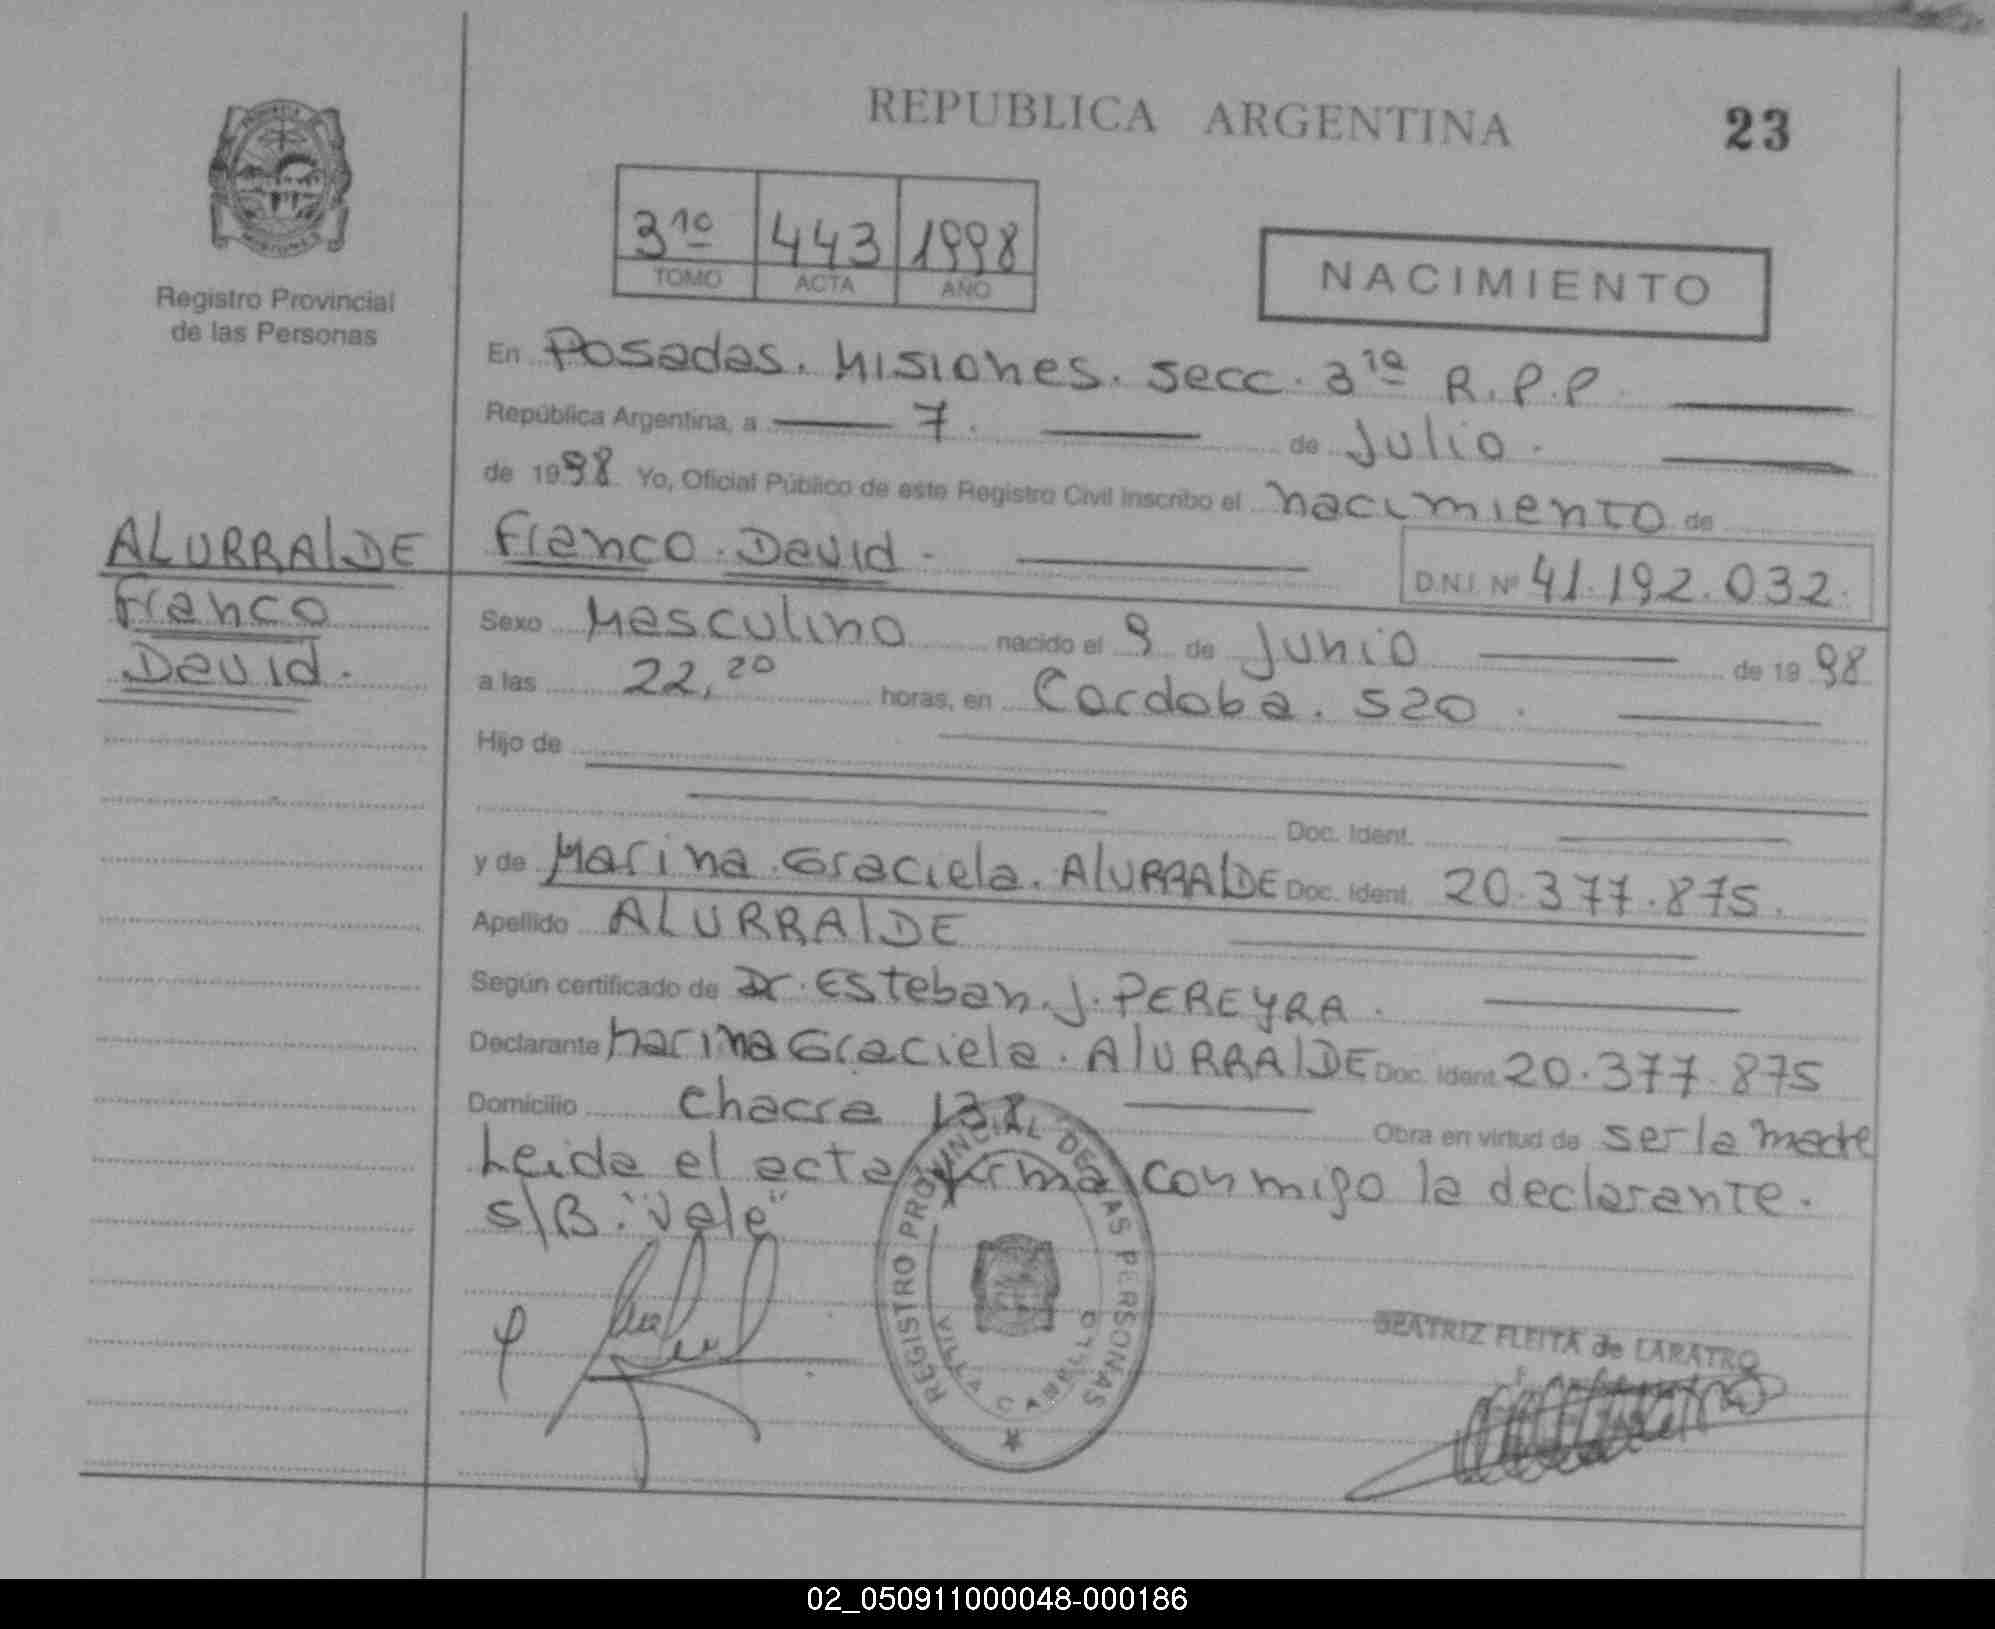 REPUBLICA ARGENTINA
23
Registro Provincial
de las Personas
3ro 443 1998
TOMO ACTA AÑO
NACIMIENTO
En Posadas. Misiones. Secc. 3ra R.P.P.
República Argentina, a 7. de Julio.
de 1998 Yo, Oficial Público de este Registro Civil inscribo el nacimiento de
ALURRALDE
Franco
David.
Franco. David. D.N.I. Nº 41.192.032.
Sexo Masculino nacido el 9 de Junio de 1998
a las 22,20 horas, en Cordoba. 520.
Hijo de
Doc. Ident.
y de Marina. Graciela. AlURRALDE Doc. Ident. 20.377.875.
Apellido ALURRALDE
Según certificado de Dr. Esteban. J. PEREYRA.
Declarante Marina Graciela. AlURRALDE Doc. Ident. 20.377.875
Domicilio Chacra 138 Obra en virtud de ser la madre
Leida el acta firma conmigo la declarante.
S/B: "Vale"
REGISTRO PROVINCIAL DE LAS PERSONAS
VILLA CABELLO
BEATRIZ FLEITA de LARATRO
02_050911000048-000186